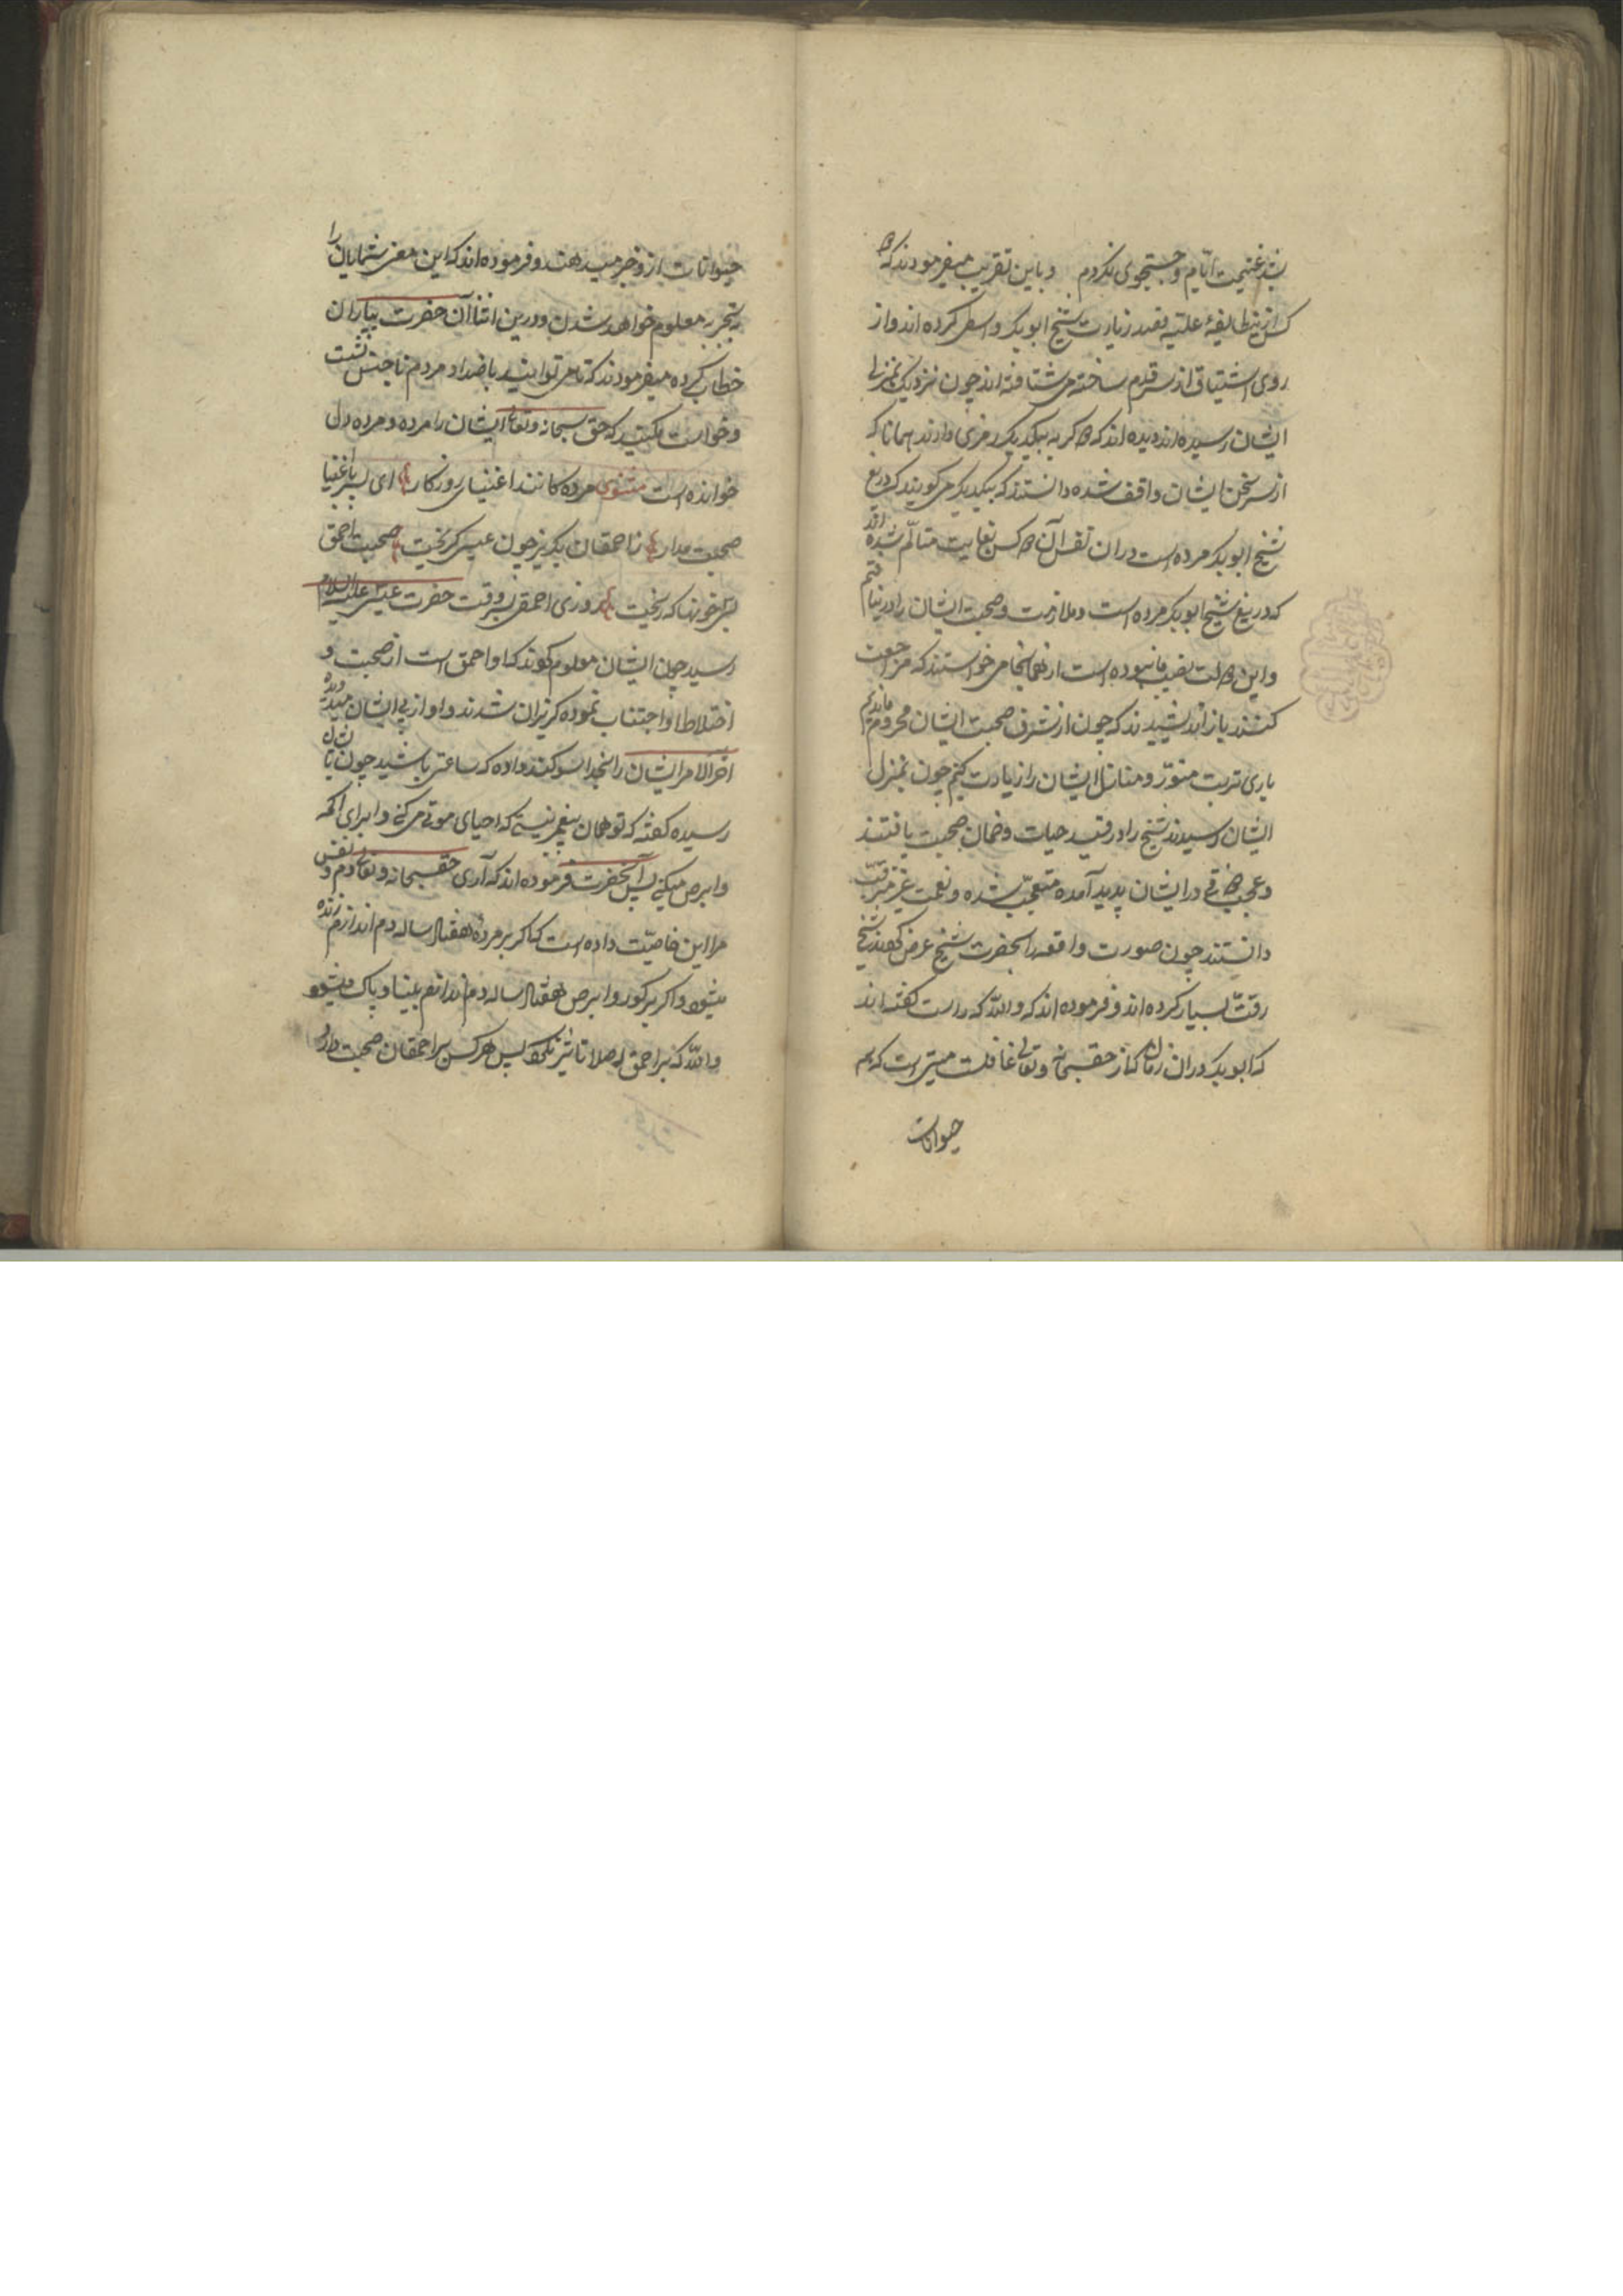 شد غنیمت ایّام و جستجوی نکردم و باین تقریب میفرمودند که
کس ازین طایفهٔ علیّه بقصد زیارت شیخ ابوبکر واسطی کرده اند و از
روی اشتیاق از سر قدم ساخته می شتافته اند چون نزدیک بمنزل
ایشان رسیده اند دیده اند که گربه بیکدیگر رمزی دادند همانا که
از سر سخن ایشان واقف شده دانستند که بیکدیگر می گویند که دریغ
شیخ ابوبکر مرده است دران نفس آن کس بغایت متألّم شده اند
که دریغ شیخ ابوبکر مرده است و ملازمت و صحبت ایشان را درنیافتیم
و این نصیب ما نبوده است از همانجا می خواستند که مراجعت
کنند باز اندیشیدند که چون از شرف صحبت ایشان محروم ماندیم
باری تربت منوّر و منازل ایشان را زیارت کنیم چون بمنزل
ایشان رسیدند شیخ را در قید حیات و ضمان صحبت یافتند
و عجب در ایشان پدید آمده متعجّب شده و نعمت غیر مترقّب
دانستند چون صورت واقعه را بحضرت شیخ عرض کردند شیخ
رقّت بسیار کرده اند و فرموده اند که واللّه که راست گفته اند
که ابوبکر دران زمان که از حق سبحانه و تعالی غافلست میّتی است که هم
حیوانات
حیوانات ازو خبر میدهند و فرموده اند که این معنی شمایان را
بتجربه معلوم خواهد شدن و درین اثنا آن حضرت بیاران
خطاب کرده میفرمودند که تا می توانید باضداد مردم ناجنس نشست
و خواست مکنید که حق سبحانه و تعالی ایشان را مرده و مرده دل
خوانده است مثنوی مرده کانند اغنیای روزکار ای پسر باغنیا
صحبت مدار ز احمقان بکریز چون عیسی کریخت صحبت احمق
بسی خونها که ریخت روزی احمقی بوقت حضرت عیسی علیه السلام
رسید چون ایشان معلوم کردند که او احمق است از صحبت و
اختلاط او اجتناب نموده کریزان شدند و او از پی ایشان میدویده
آخر الامر ایشان را بخدا سوکند داده که ساعتی باشید چون بایشان
رسیده گفته که تو همان پیغمبر نیستی که احیای موتی می کنی و ابرای اکمه
و ابرص میکنی پس آنحضرت فرموده اند که آری حق سبحانه و تعالی دم و نفس
مرا این خاصیّت داده است که اگر بر مردهٔ هفتاد ساله دم اندازم زنده
میشود و اگر بر کور و ابرص هفتاد ساله دم اندازم بینا و پاک میشود
واللّه که بر احمق اصلا تاثیر نکند پس هر کس بر احمقان صحبت دارد